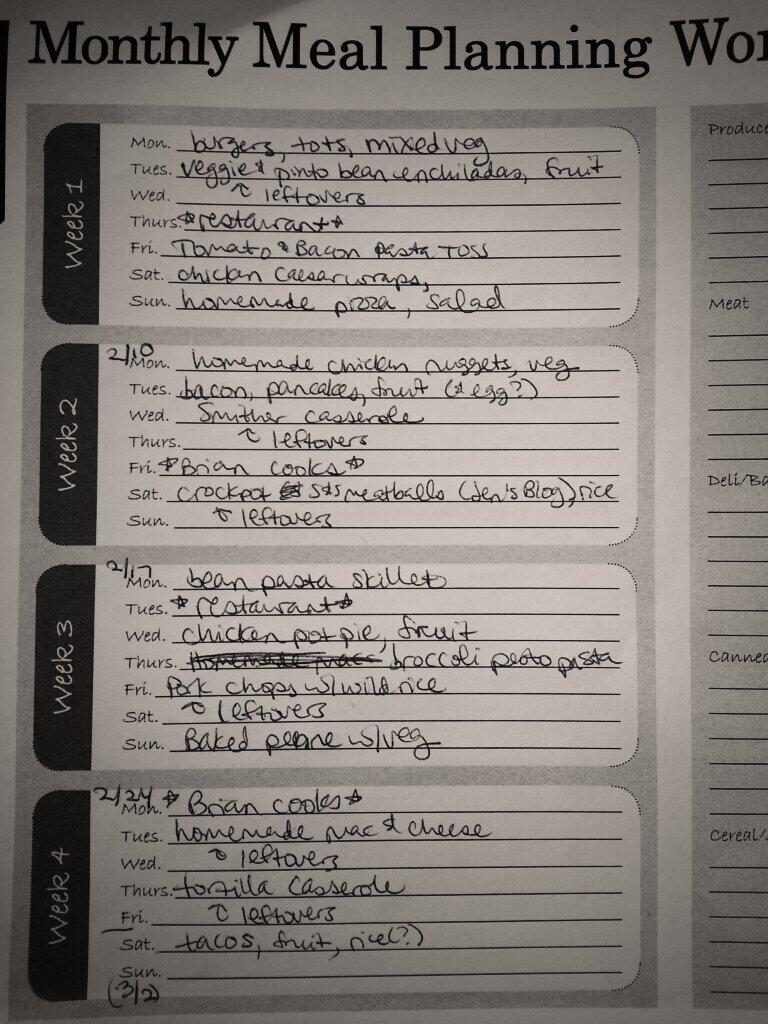 Monthly Meal Planning Wo
Week 1
Mon. burgers, tots, mixed veg
Tues. veggie & pinto bean enchiladas, fruit
Wed. ↑ leftovers
Thurs. *restaurant*
Fri. Tomato & Bacon Pasta Toss
Sat. chicken Caesar wraps,
Sun. homemade pizza, salad
Week 2
2/10
Mon. homemade chicken nuggets, veg
Tues. bacon, pancakes, fruit (& egg?)
Wed. Smither casserole
Thurs. ↑ leftovers
Fri. *Brian cooks*
Sat. crockpot S&S meatballs (Jen's Blog), rice
Sun. ↑ leftovers
Week 3
2/17
Mon. bean pasta skillet
Tues. *restaurant*
Wed. chicken pot pie, fruit
Thurs. Homemade mac broccoli pesto pasta
Fri. Pork chops w/ wild rice
Sat. ↑ leftovers
Sun. Baked penne w/ veg
Week 4
2/24
Mon. *Brian cooks*
Tues. homemade mac & cheese
Wed. ↑ leftovers
Thurs. tortilla casserole
Fri. ↑ leftovers
Sat. tacos, fruit, rice(?)
Sun.
(3/2)
Produce
Meat
Deli/Ba
Canned
Cereal/